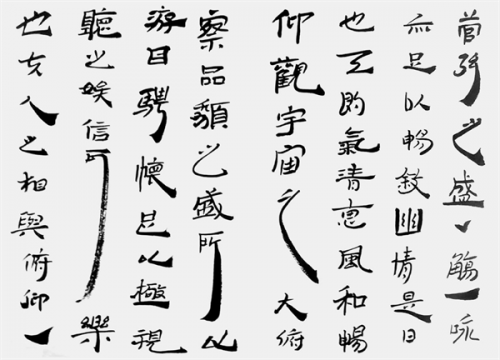 管弦之盛一觴一咏
亦足以暢敘幽情是日
也天朗氣清惠風和暢
仰觀宇宙之大俯
察品類之盛所以
遊目騁懷足以極視
聽之娛信可樂
也夫人之相與俯仰一